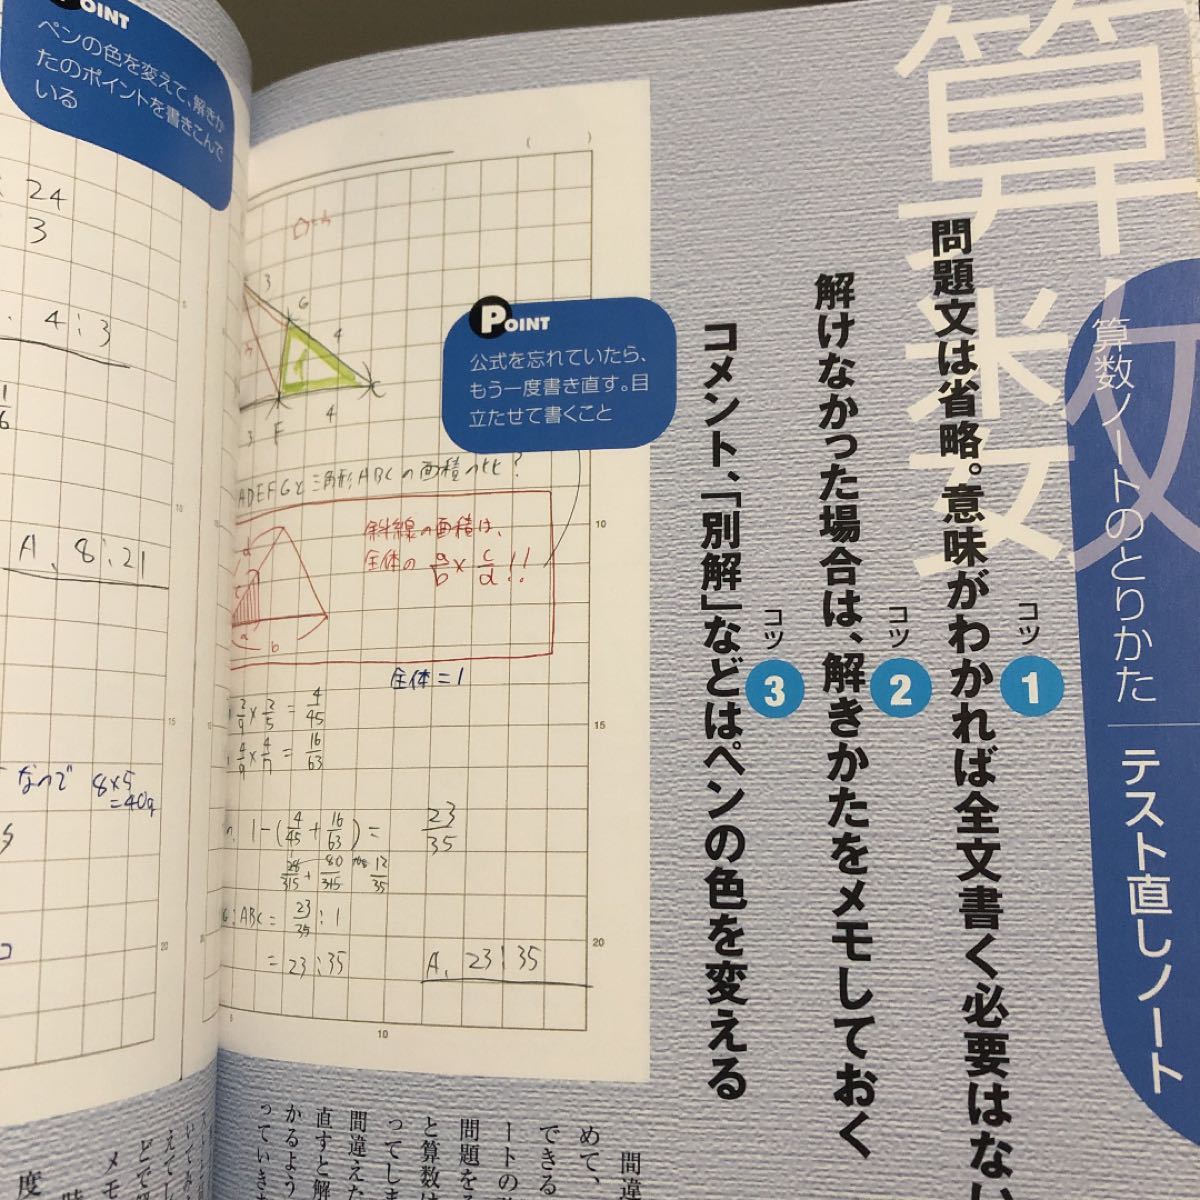 算数
算数ノートのとりかた
テスト直しノート
コツ
1
問題文は省略。意味がわかれば全文書く必要はない
コツ
2
解けなかった場合は、解きかたをメモしておく
コツ
3
コメント、「別解」などはペンの色を変える
POINT
公式を忘れていたら、
もう一度書き直す。目
立たせて書くこと
POINT
ペンの色を変えて、解きか
たのポイントを書きこんで
いる
( )
3
G
4
C
3
F
4
ADEFGと三角形ABCの面積の比?
斜線の面積は、
全体の a/b × c/d !!
a
b
全体=1
2/9 × 2/5 = 4/45
4/9 × 4/7 = 16/63
1-(4/45 + 16/63) = 23/35
28/315 + 80/315
12/35
:ABC = 23/35 : 1
= 23:35
A、23:35
5
10
10
15
20
24
3
4:3
1/6
A、8:21
なので 8×5
=40g
5
10
15
20
間違
めて、
できる
ートの
問題を
と算数は
ってしま
間違えた
直すと解
かるよう
っていき